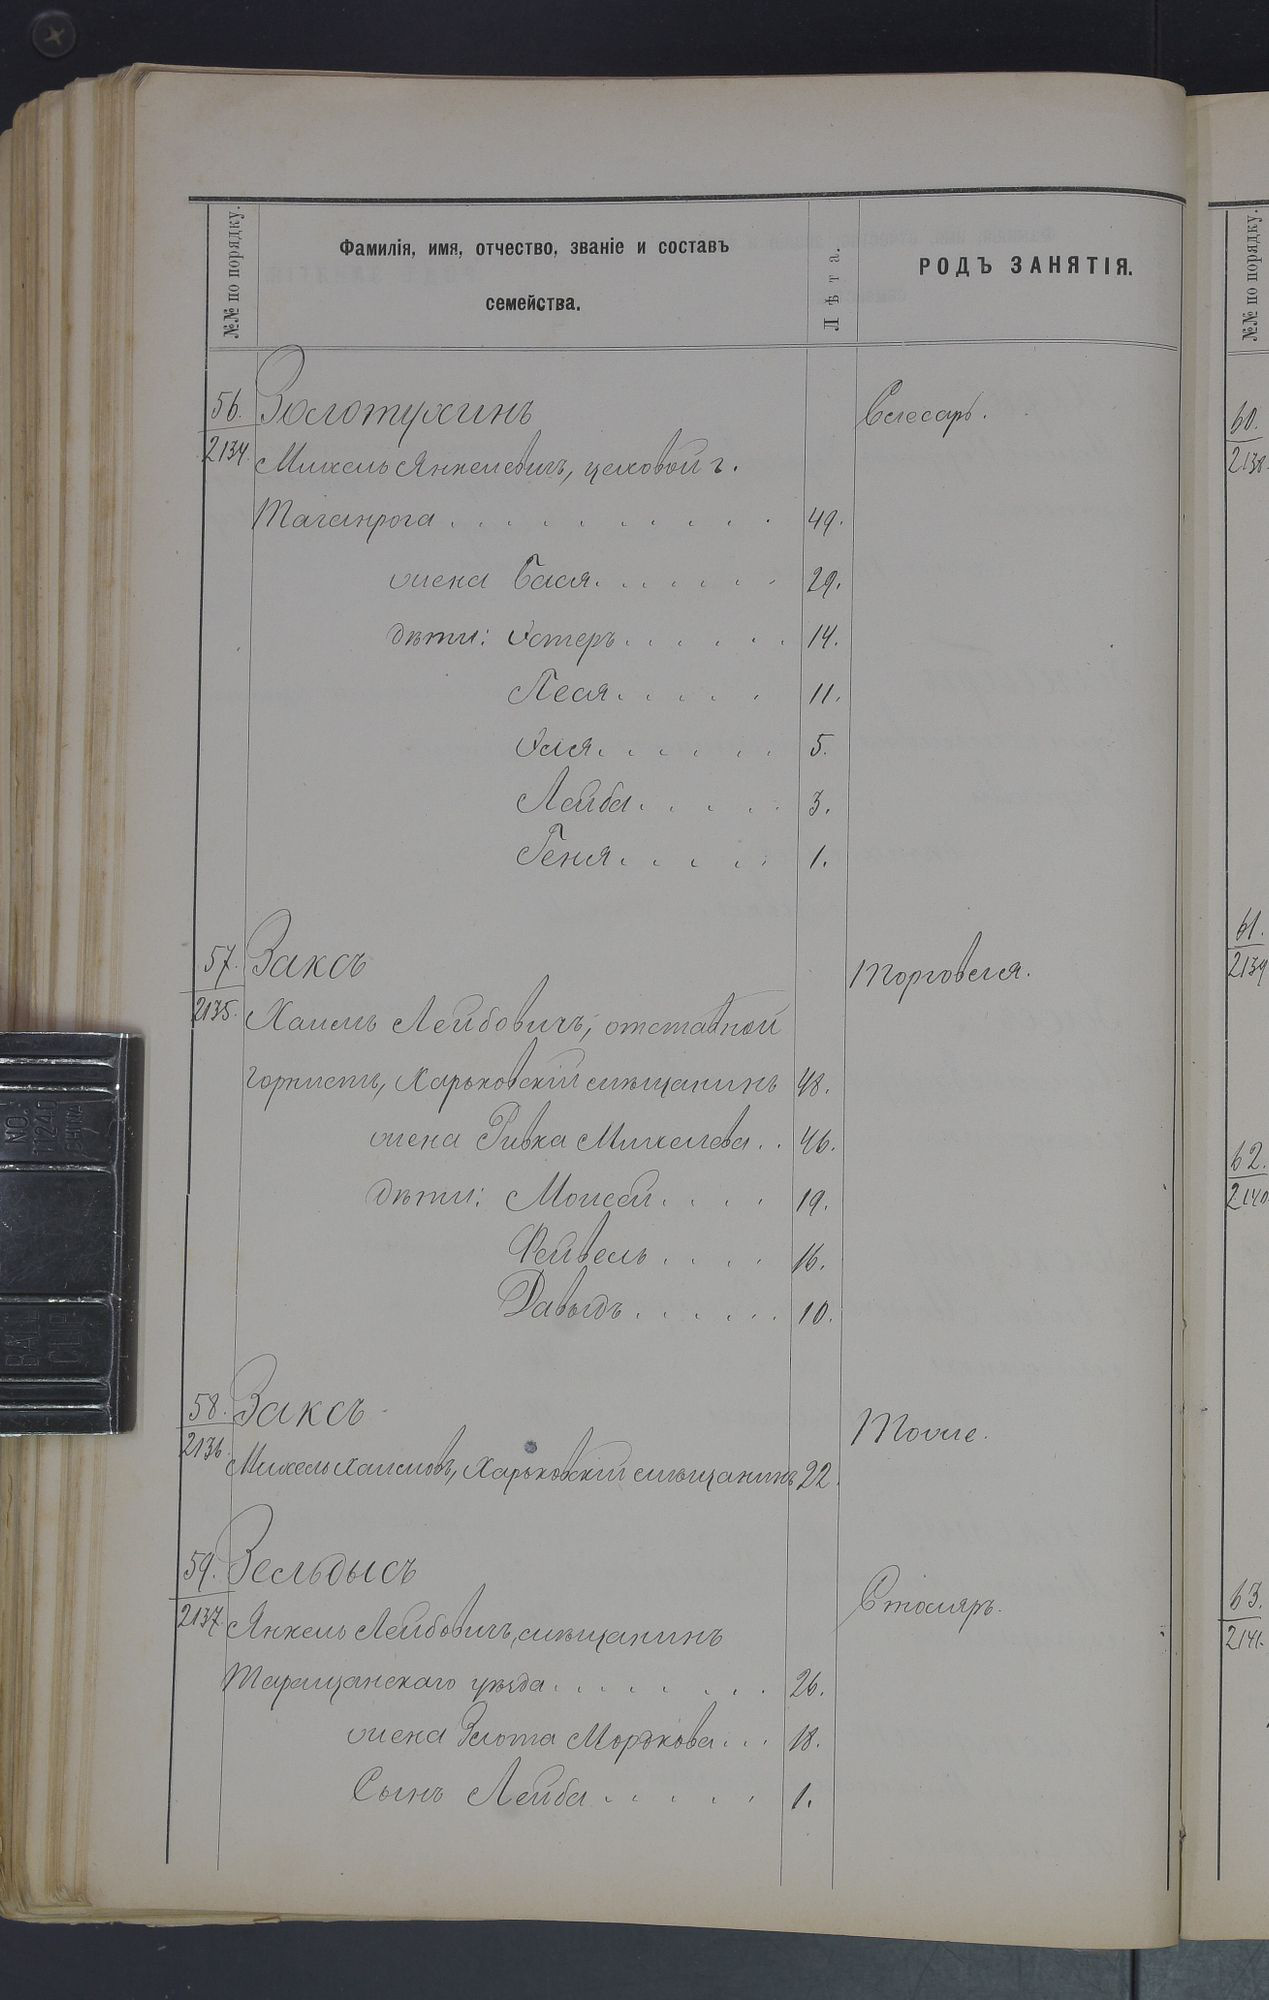 №№ по порядку.
Фамилія, имя, отчество, званіе и составъ
семейства.
Лѣта.
РОДЪ ЗАНЯТІЯ.
56. Золотухинъ Слесарь.
2134. Михель Янкелевичъ, цеховой г.
Таганрога . . . . . . . . . . 49.
жена Бася . . . . . . 29.
дѣти: Эстеръ . . . . . . 14.
Песя . . . . . 11.
Эля . . . . . . 5.
Лейба . . . . . 3.
Геня . . . . . 1.
57. Заксъ Торговля.
2135. Хаимъ Лейбовичъ, отставной
горнистъ, Харьковскій мѣщанинъ 48.
жена Ривка Михелева . . 46.
дѣти: Моисей . . . . 19.
Фейвель . . . . 16.
Давыдъ . . . . . . 10.
58. Заксъ Тоже.
2136. Михель Хаимовъ, Харьковскій мѣщанинъ 22.
59. Зельдысъ Столяръ.
2137. Янкель Лейбовичъ, мѣщанинъ
Таращанскаго уѣзда . . . . . . . . 26.
жена Злота Мордкова . . . 18.
Сынъ Лейба . . . . . 1.
№№ по порядку.
60.
2138.
61.
2139
62.
2140
63.
2141.
NO.
11240
CHINA
BALL
CLIP